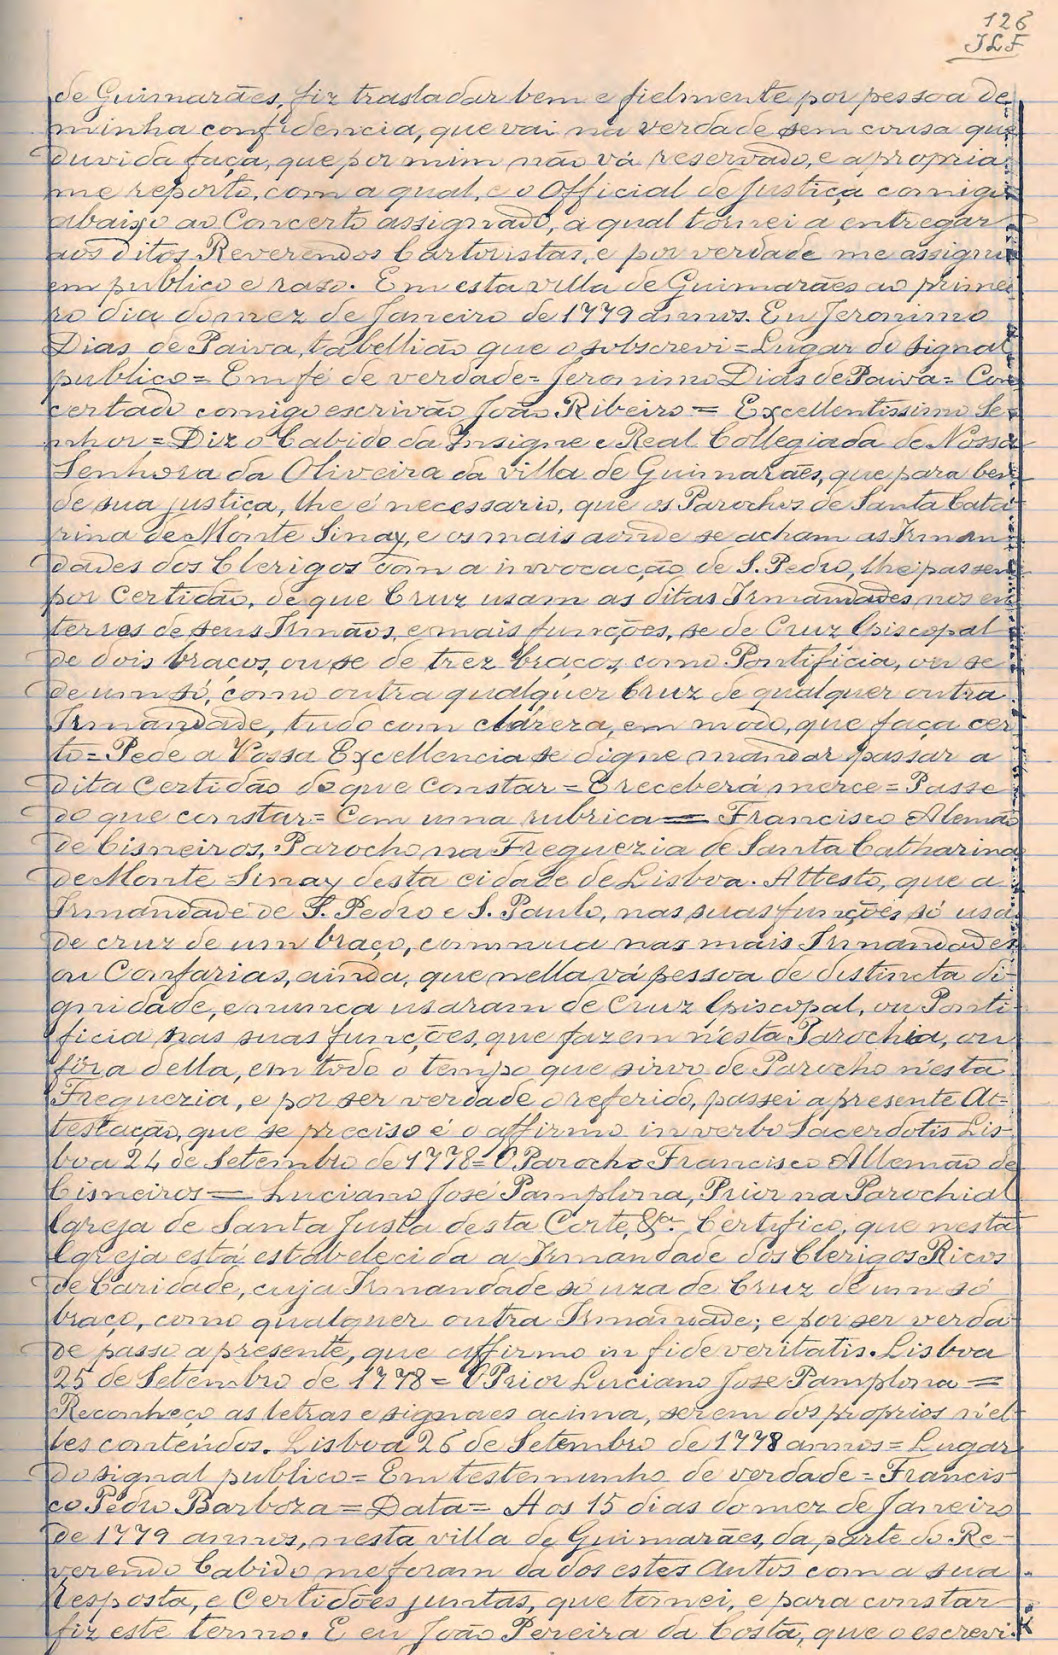 126
JLF
de Guimarães, fiz trasladar bem e fielmente por pessoa de
minha confidencia, que vai na verdade sem cousa que
duvida faça, que por mim não vá reservado, e a propria
me reporto, com a qual, e o Official de Justiça comigo
abaixo ao Concerto assignado, a qual tornei a entregar
aos ditos Reverendos Cartoristas, e por verdade me assignei
em publico e raso. Em esta villa de Guimarães ao primei
ro dia do mez de Janeiro de 1779 annos. Eu Jeronimo
Dias de Paiva, tabellião que o sobscrevi = Lugar do signal
publico = Em fé de verdade = Jeronimo Dias de Paiva = Con
certado comigo escrivão João Ribeiro = Excellentissimo Se-
nhor = Diz o Cabido da Insigne e Real Collegiada de Nossa
Senhora da Oliveira da villa de Guimarães, que para bem
de sua justiça, lhe é necessario, que os Parochos de Santa Cata
rina de Monte Sinay, e os mais aonde se acham as Irman
dades dos Clerigos com a invocação de S. Pedro, lhe passem
por Certidão, de que Cruz usam as ditas Irmandades, nos en
terros de seus Irmãos, e mais funcções, se de Cruz Episcopal
de dois braços, ou se de trez braços, como Pontificia, ou se
de um só, como outra qualquer Cruz de qualquer outra
Irmandade, tudo com clareza, em modo, que faça cer
to = Pede a Vossa Excellencia se digne mandar passar a
dita Certidão do que constar = E receberá merce = Passe
do que constar = Com uma rubrica = Francisco Alemão
de Cisneiros, Parocho na Freguezia de Santa Catharina
de Monte Sinay desta cidade de Lisboa. Attesto, que a
Irmandade de S. Pedro e S. Paulo, nas suas funcções só usa
de cruz de um braço, commua nas mais Irmandades,
ou Confarias, ainda, que nella vá pessoa de distincta di-
gnidade, e nunca usaram de Cruz Episcopal, ou Ponti-
ficia nas suas funcções, que fazem n'esta Parochia, ou
fóra della, em todo o tempo que sirvo de Parocho n'esta
Freguezia, e por ser verdade o referido, passei a presente At=
testação, que se preciso é o affirmo in verbo Sacerdotis Lis-
boa 24 de Setembro de 1778 = O Parocho Francisco Allemão de
Cisneiros = Luciano José Pamplona, Prior na Parochial
Igreja de Santa Justa desta Corte, &ª. Certifico, que nesta
Igreja está estabelecida a Irmandade dos Clerigos Ricos
de Caridade, cuja Irmandade só uza de Cruz de um só
braço, como qualquer outra Irmandade; e por ser verda
de passo a presente, que affirmo in fide veritatis. Lisboa
25 de Setembro de 1778 = O Prior Luciano Jose Pamplona =
Reconheço as letras e signaes acima, serem dos proprios n'el-
les conteúdos. Lisboa 26 de Setembro de 1778 annos = Lugar
do signal publico = Em testemunho de verdade = Francis-
co Pedro Barboza = Data = Aos 15 dias do mez de Janeiro
de 1779 annos, nesta villa de Guimarães, da parte do Re-
verendo Cabido me foram dados estes Autos com a sua
resposta, e Certidões juntas, que tornei, e para constar
fiz este termo. E eu João Pereira da Costa, que o escrevi.